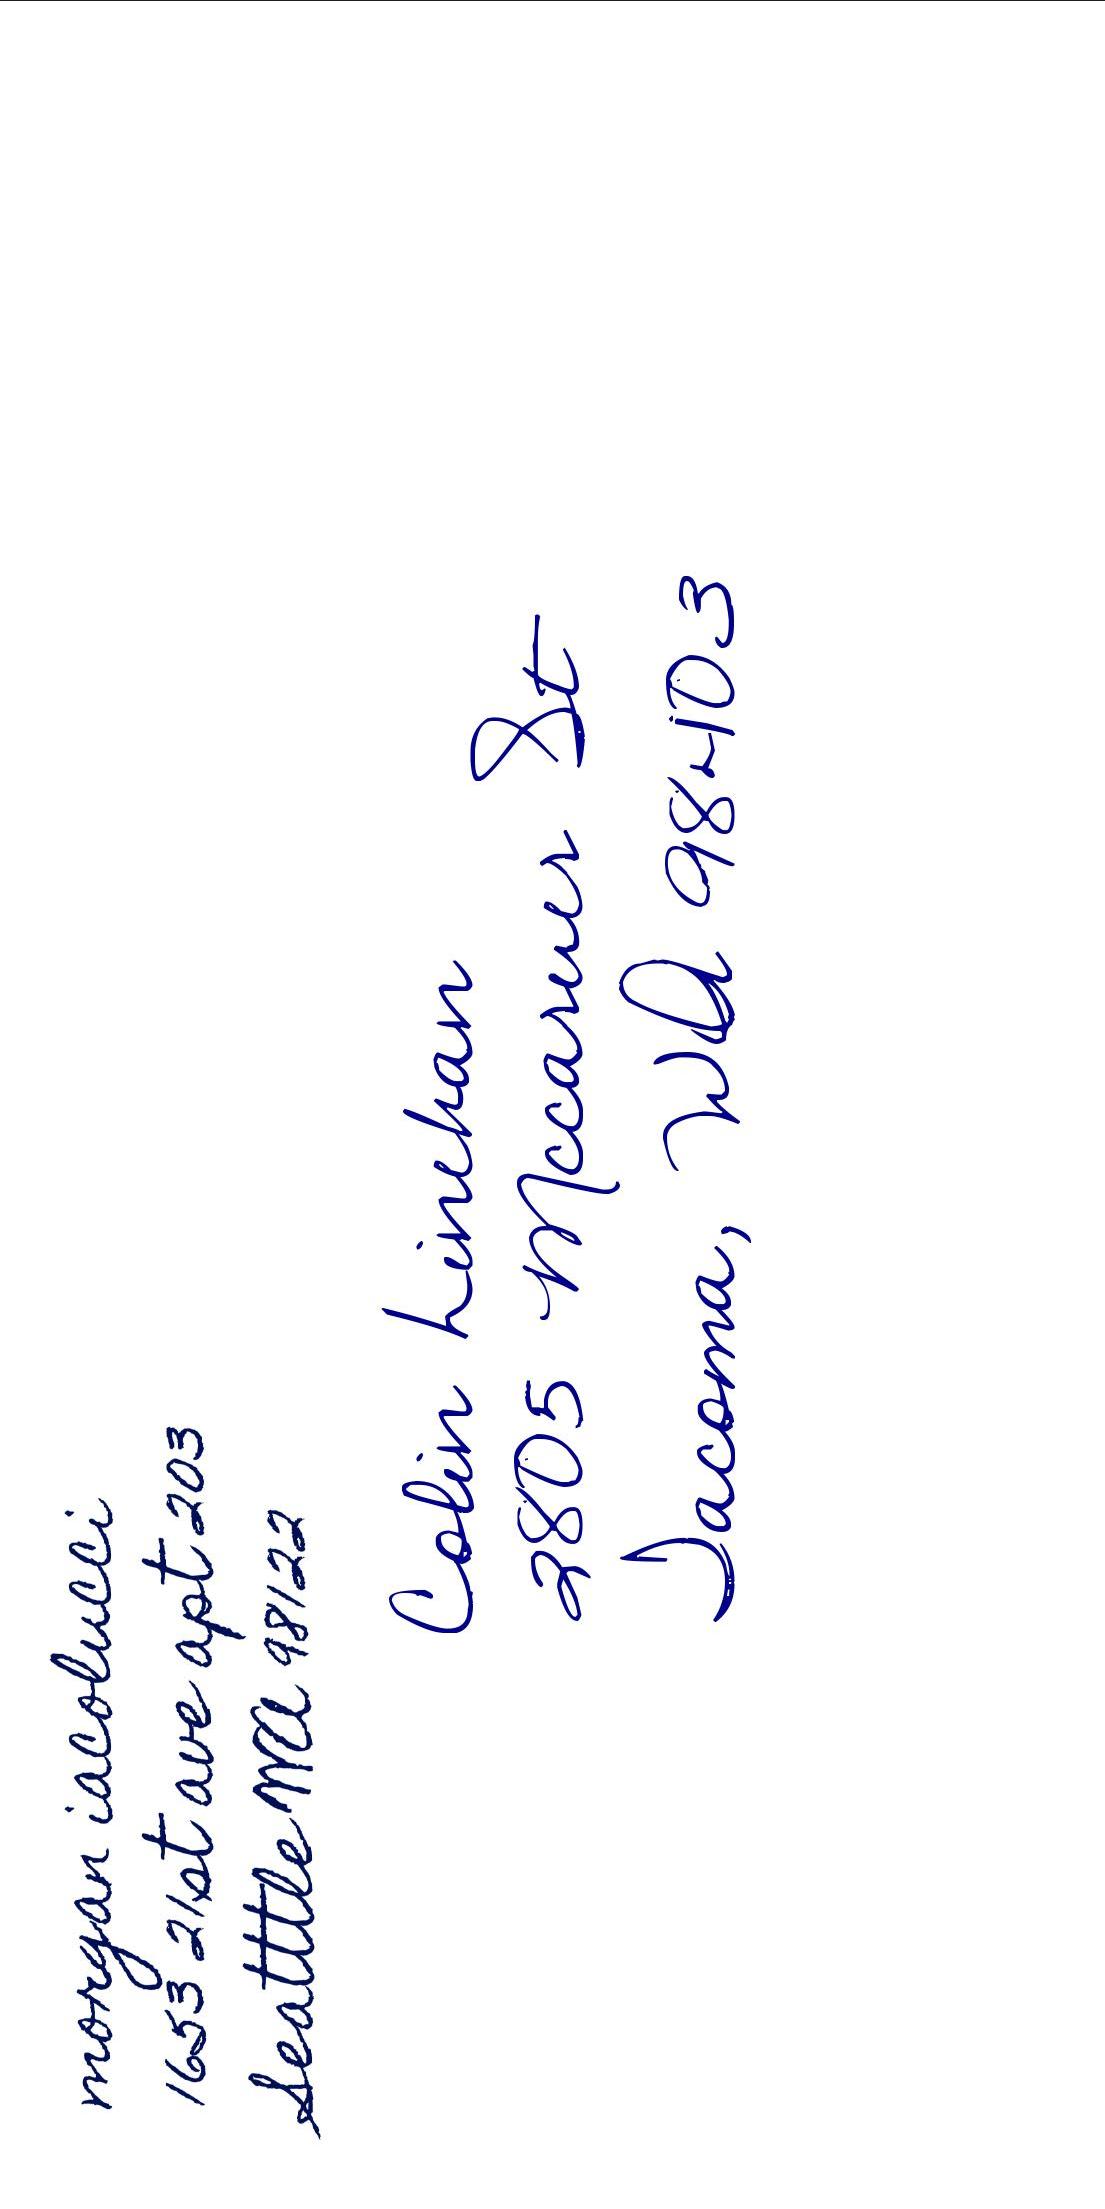 morgan iacolucci
1653 21st ave apt 203
Seattle WA 98122
Colin Linehan
2805 Mccarver St
Tacoma, WA 98403